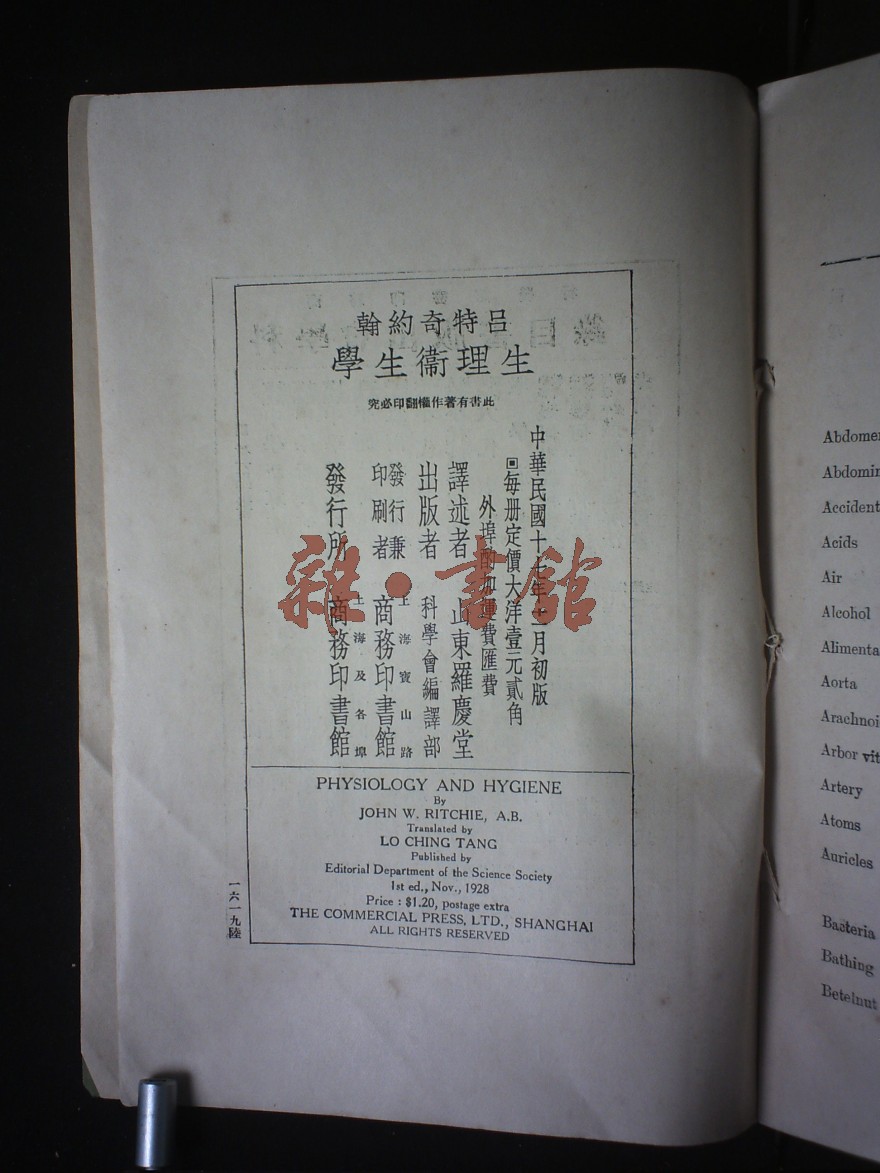 呂特奇約翰
生理衞生學
此書有著作權翻印必究
中華民國十七年十一月初版
每册定價大洋壹元貳角
外埠酌加運費匯費
譯述者 山東羅慶堂
出版者 科學會編譯部
發行兼
印刷者
上海寶山路
商務印書館
發行所
上海及各埠
商務印書館
PHYSIOLOGY AND HYGIENE
By
JOHN W. RITCHIE, A.B.
Translated by
LO CHING TANG
Published by
Editorial Department of the Science Society
1st ed., Nov., 1928
Price : $1.20, postage extra
THE COMMERCIAL PRESS, LTD., SHANGHAI
ALL RIGHTS RESERVED
一六一九陸
雜·書館
Acids
Air
Alcohol
Aorta
Artery
Atoms
Auricles
Bacteria
Bathing
Betelnut